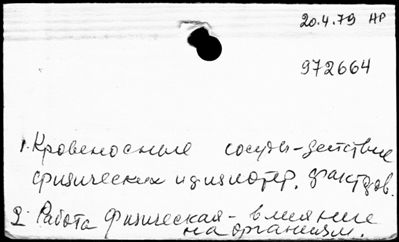 20.4.79 НР
972664
1. Кровеносные сосуды-действие
физических и физиотер. факторов.
2. Работа физическая - влияние
на организм.